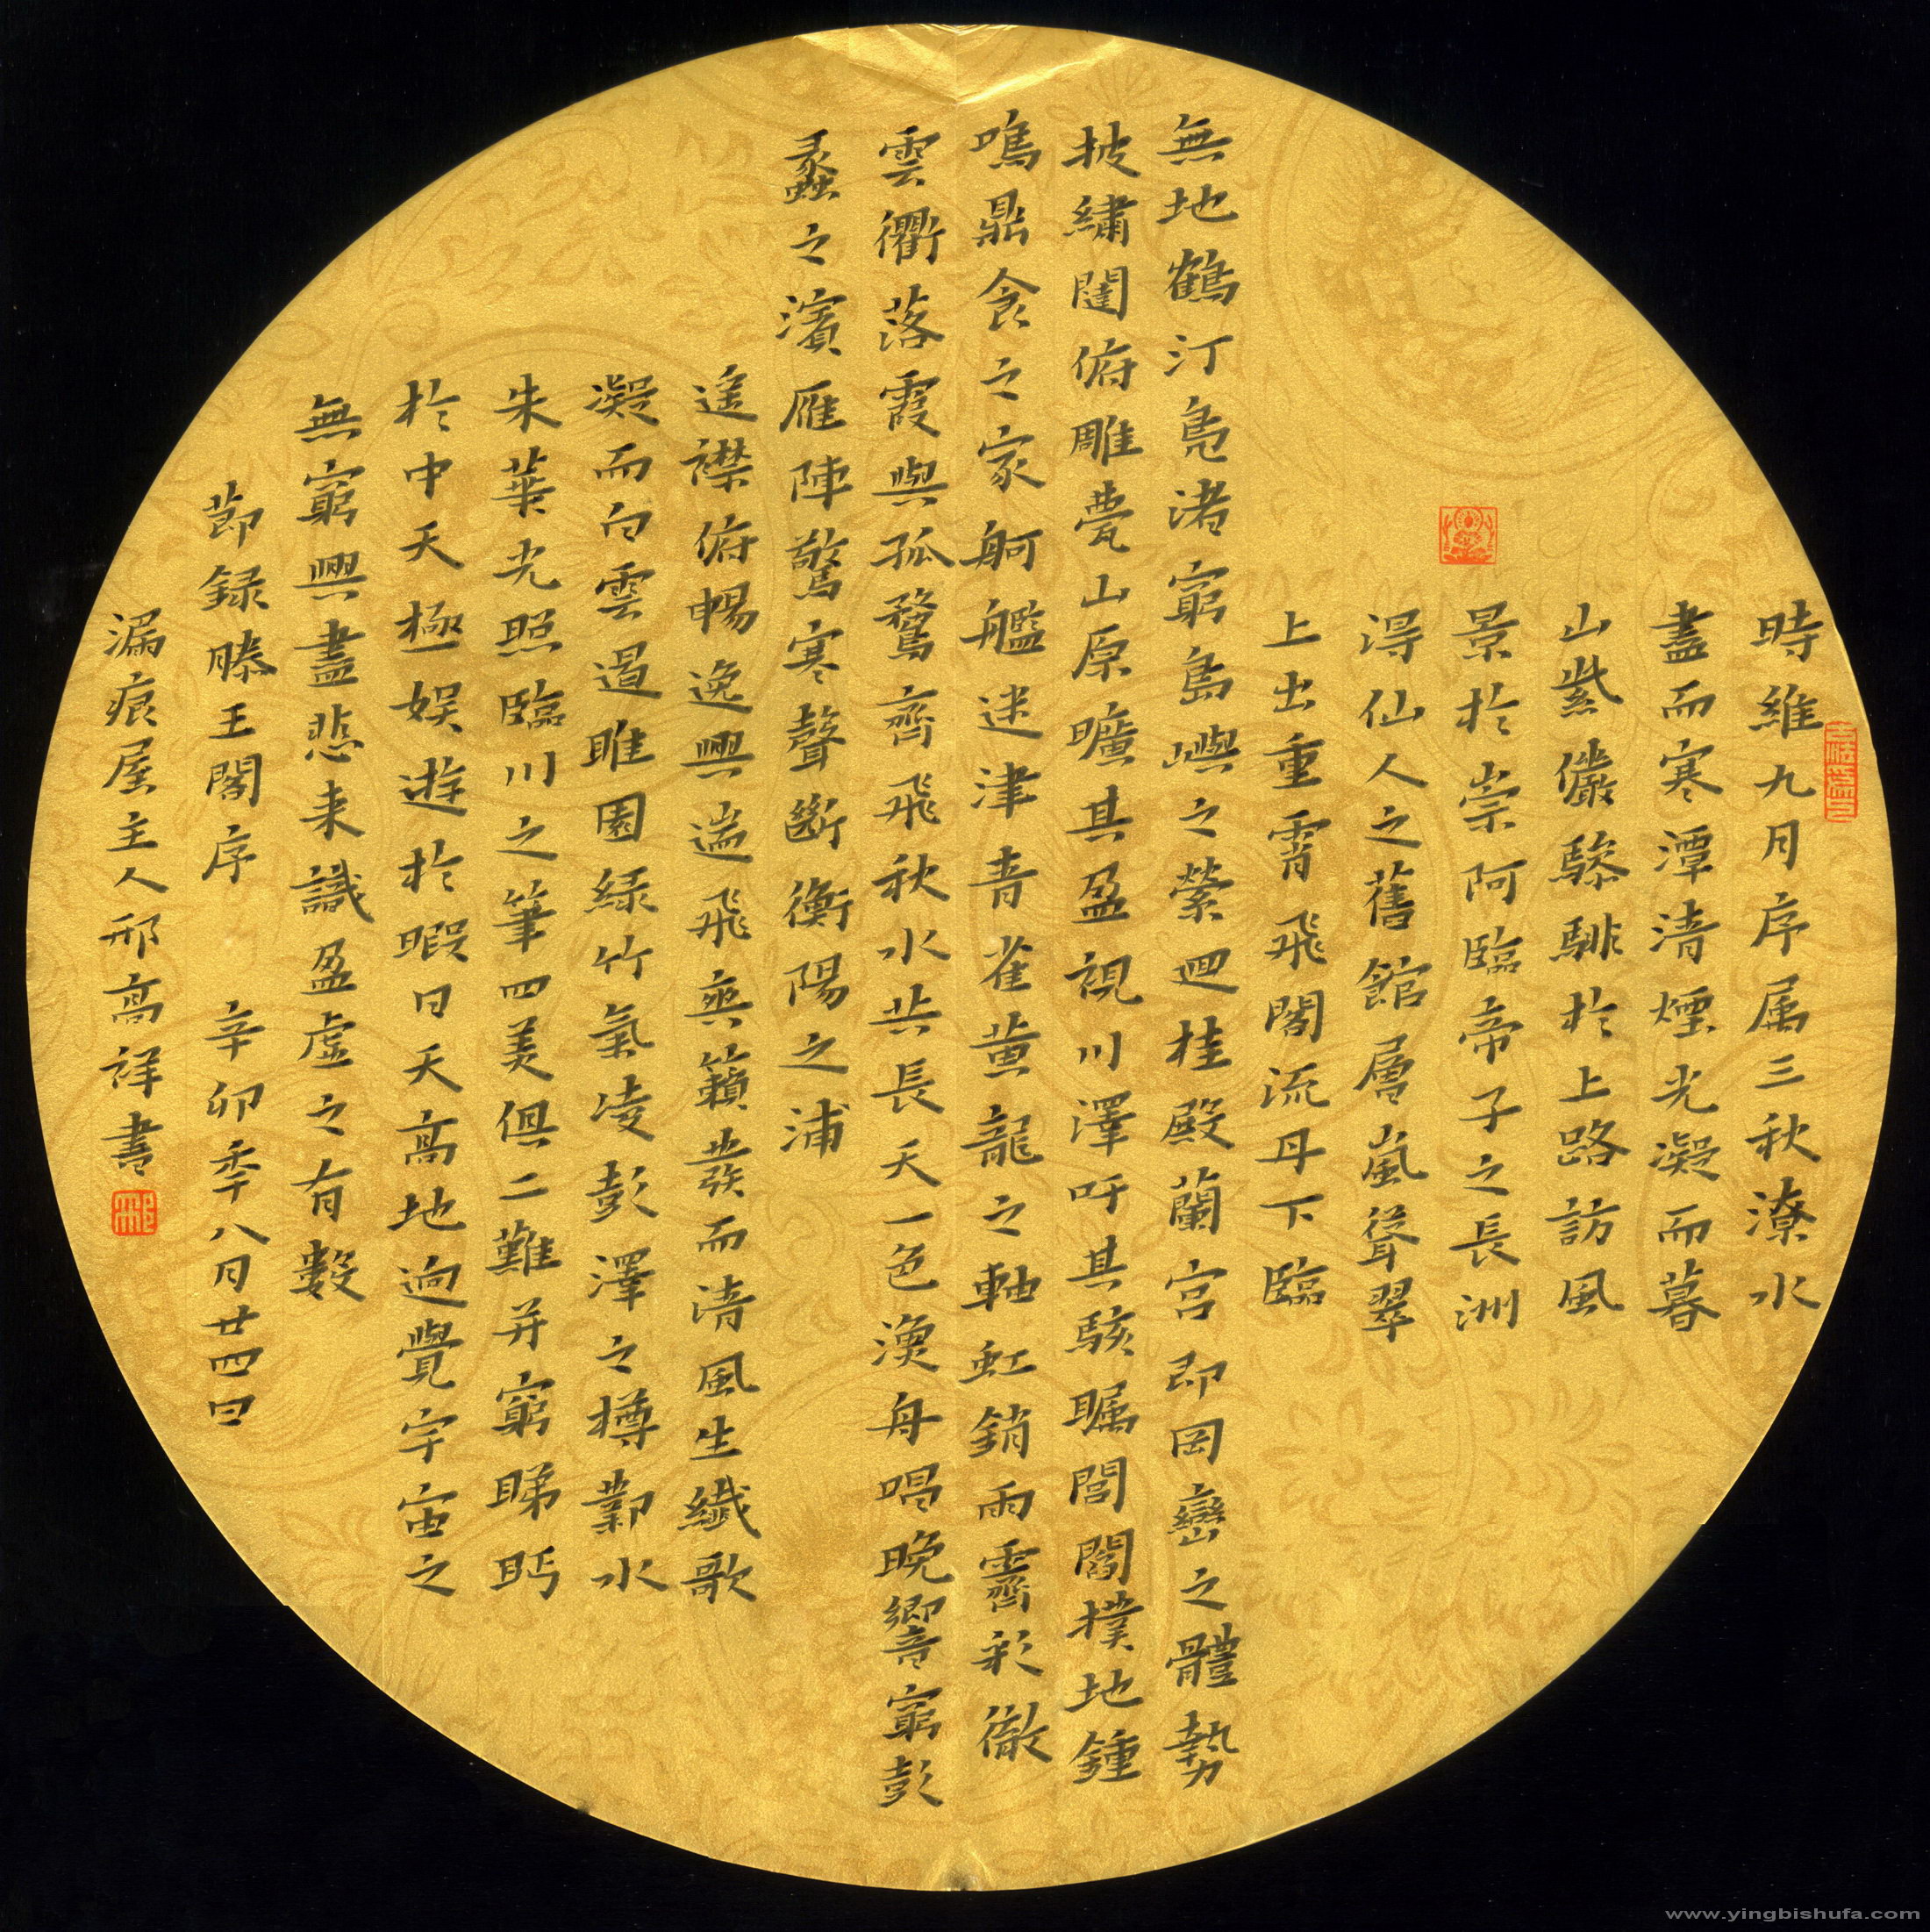 時維九月序属三秋潦水
盡而寒潭清煙光凝而暮
山紫儼驂騑於上路訪風
景於崇阿臨帝子之長洲
得仙人之舊館層嵐聳翠
上出重霄飛閣流丹下臨
無地鶴汀鳧渚窮島嶼之縈迴桂殿蘭宮即岡巒之體勢
披繡闥俯雕甍山原曠其盈視川澤吁其駭矚閭閻撲地鍾
鳴鼎食之家舸艦迷津青雀黃龍之軸虹銷雨霽彩徹
雲衢落霞與孤鶩齊飛秋水共長天一色漁舟唱晚響窮彭
蠡之濱雁陣驚寒聲斷衡陽之浦
遙襟俯暢逸興遄飛爽籟發而清風生纖歌
凝而白雲遏睢園綠竹氣凌彭澤之樽鄴水
朱華光照臨川之筆四美俱二難并窮睇眄
於中天極娛遊於暇日天高地迥覺宇宙之
無窮興盡悲来識盈虛之有數
節録滕王閣序 辛卯季八月廿四日
漏痕屋主人邢高祥書
www.yingbishufa.com